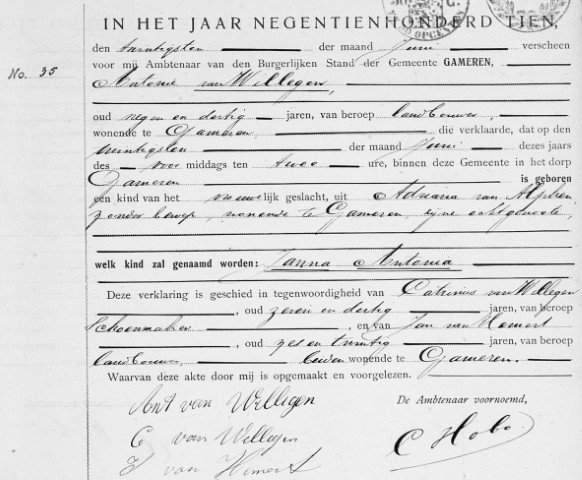 IN HET JAAR NEGENTIENHONDERD TIEN,
den twintigsten der maand Juni verscheen
voor mij Ambtenaar van den Burgerlijken Stand der Gemeente GAMEREN,
No. 35
Antonie van Willegen,
oud negen en dertig jaren, van beroep landbouwer,
wonende te Gameren, die verklaarde, dat op den
twintigsten der maand Juni dezes jaars
des voor middags ten twee ure, binnen deze Gemeente in het dorp
Gameren is geboren
een kind van het vrouwelijk geslacht, uit Adriana van Alphen
zonder beroep, wonende te Gameren, zijne echtgenoote,
welk kind zal genaamd worden: Janna Antonia
Deze verklaring is geschied in tegenwoordigheid van Catrinus van Willegen
, oud zeven en dertig jaren, van beroep
Schoenmaker , en van Jan van Hemert
, oud zes en twintig jaren, van beroep
landbouwer, beiden wonende te Gameren.
Waarvan deze akte door mij is opgemaakt en voorgelezen.
De Ambtenaar voornoemd,
Ant van Willegen
C van Willegen
C Hobo
J van Hemert